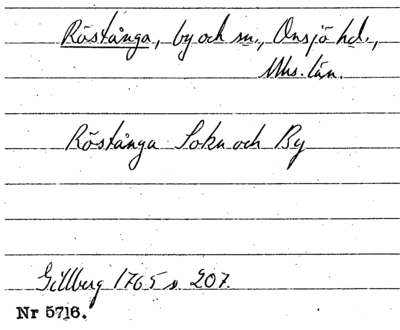 Röstånga, by och sn., Onsjö hd.,
Mhs. län.
Röstånga Sokn och By
Gillberg 1765 s. 207.
Nr 5716.